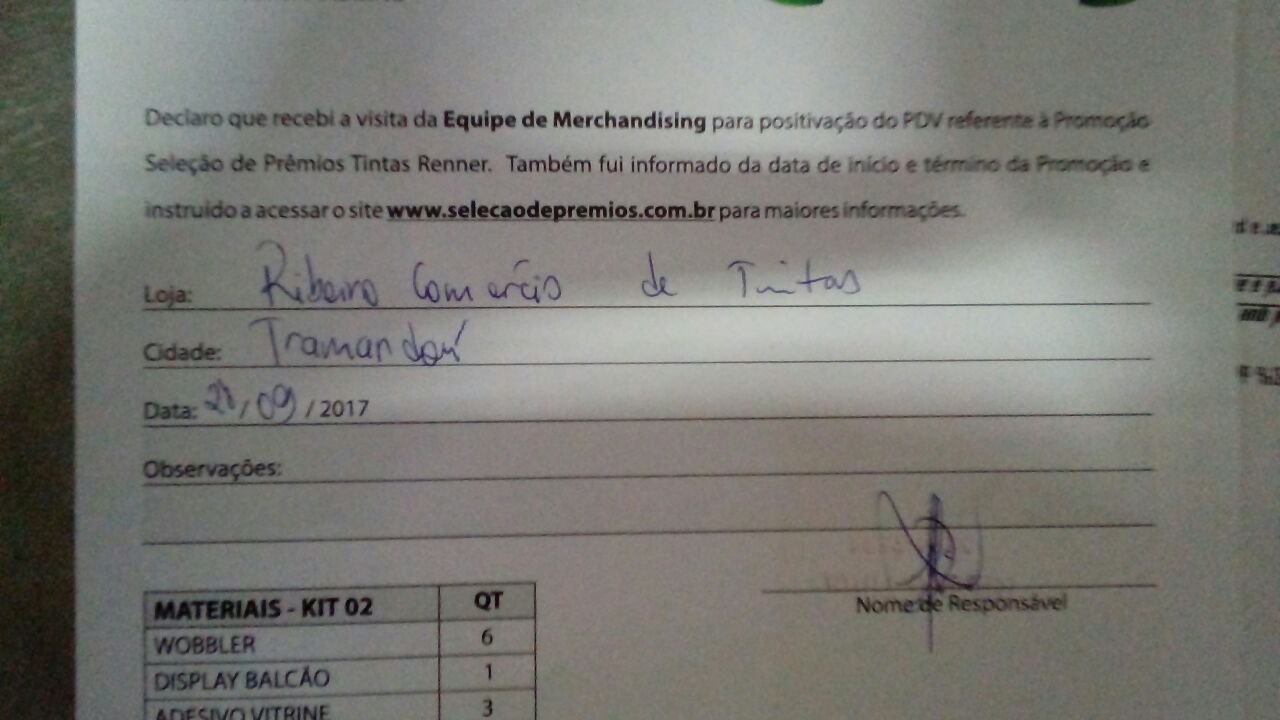 Declaro que recebi a visita da Equipe de Merchandising para positivação do PDV referente à Promoção
Seleção de Prêmios Tintas Renner. Também fui informado da data de início e término da Promoção e
instruído a acessar o site www.selecaodepremios.com.br para maiores informações.
Loja: Ribeiro Comércio de Tintas
Cidade: Tramandaí
Data: /09/2017
Observações:
Nome de Responsável
MATERIAIS - KIT 02 QT
WOBBLER 6
DISPLAY BALCÃO 1
ADESIVO VITRINE 3